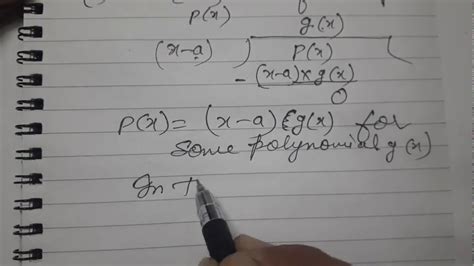 p(x)
g(x)
(x-a) ) p(x) (
- (x-a) x g(x)
0
p(x) = (x-a) g(x) for
some polynomial g(x)
In t